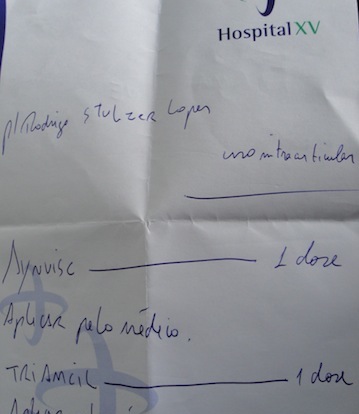 Hospital XV
p/ Rodrigo Stulzer Lopes
uso intraarticular
Synvisc ——— 1 dose
Aplicar pelo médico.
TRIAMCIL ——— 1 dose